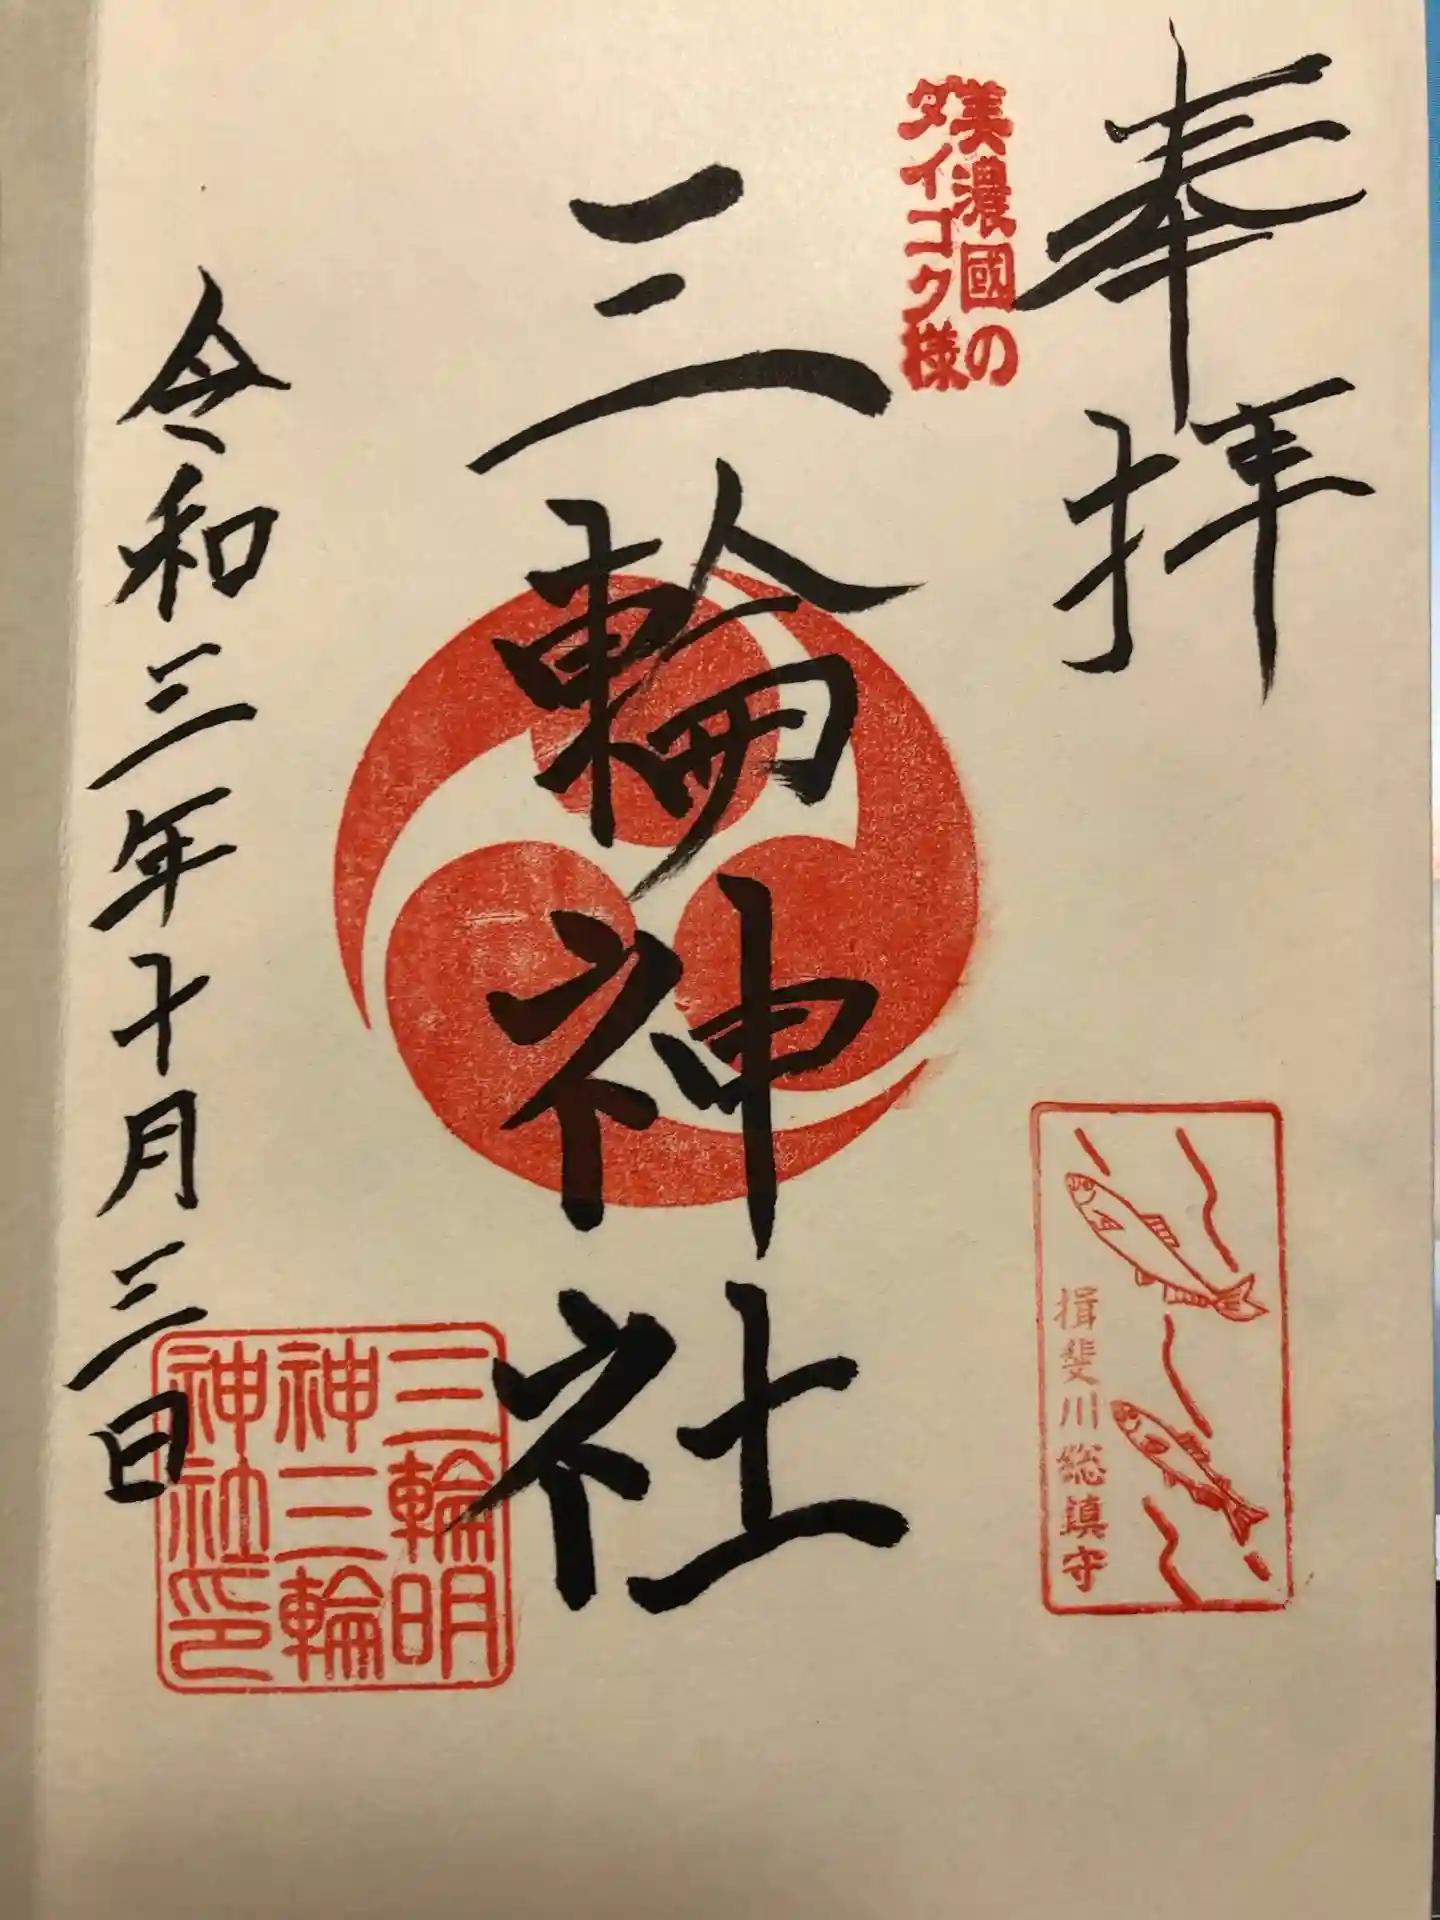 奉拝
美濃國の
タイコク様
三輪神社
揖斐川総鎮守
三輪明
神三輪
神社印
令和三年十月三日